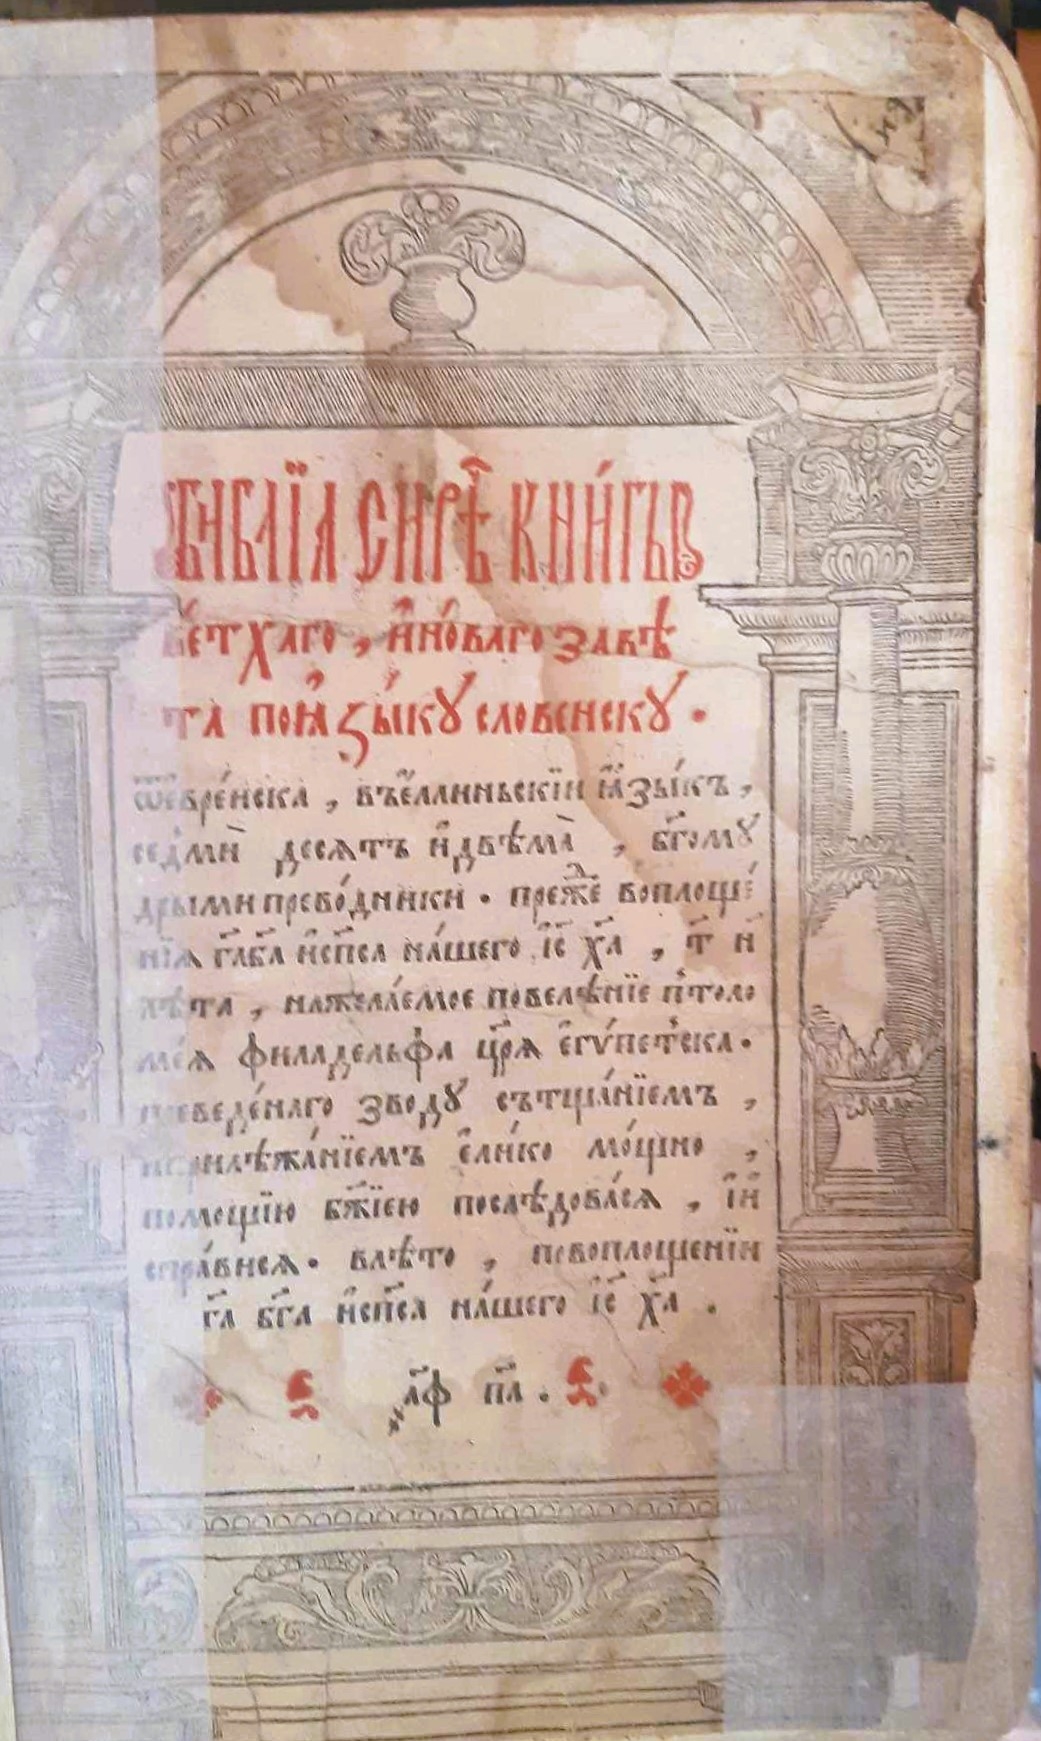 БИБЛЇА СИРѢ҃Ч КНИ́ГЫ
ВЕ́ТХАГО , И҆НО́ВАГО ЗАВѢ
ТА ПОꙖ҆ЗЫ́КꙊ СЛОВЕНСКꙊ .
ѿЕвре́нска , въе́ллиньскїи ꙗ҆зы́къ ,
седмѝ десѧтъ и҆двѣмà , б҃гомꙋ
дрыми прево́дники . преⷤ҇де воплоще́
нїѧ г҃а б҃а и҆сп҃са на́шего і҃с х҃а , т҃ и
лѣта , нажела́емое повелѣ́нїе п̾толо
ме́ѧ филаде́льфа ц҃рѧ е҆гѵ́петска .
преведе́наго зводꙋ сътща́нїемъ ,
иприлѣжа́нїемъ е҆ли́ко мо́щно ,
помощїю б҃жїею послѣдова́сѧ , і҆и҆
спра́висѧ . влѣто , повоплощенїи
г҃а б҃га и҆сп҃са на́шего і҃с х҃а .
҂а҃ф п҃а .